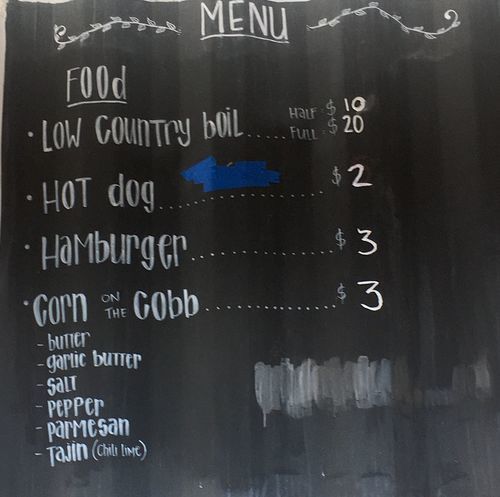 MENU
FOOd
• LOW COUNTRY bOIL..... HALF: $ 10
FULL: $ 20
• HOT dog.......................... $ 2
• HAMburger...................... $ 3
• CORN ON THE CObb.................... $ 3
- butter
- garlic butter
- SALT
- PEPPER
- PARMESAN
- TAJIN (CHILI LIME)